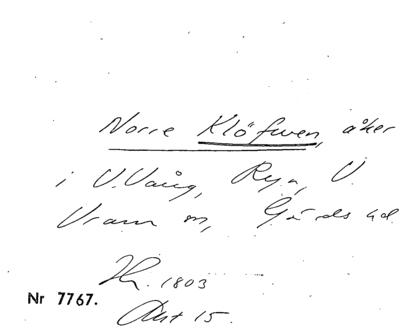 Norre Klöfwen, åker
i V. Vång, Rya, V.
Vram sn, Gärds hd.
Hr. 1803
Akt 15.
Nr 7767.